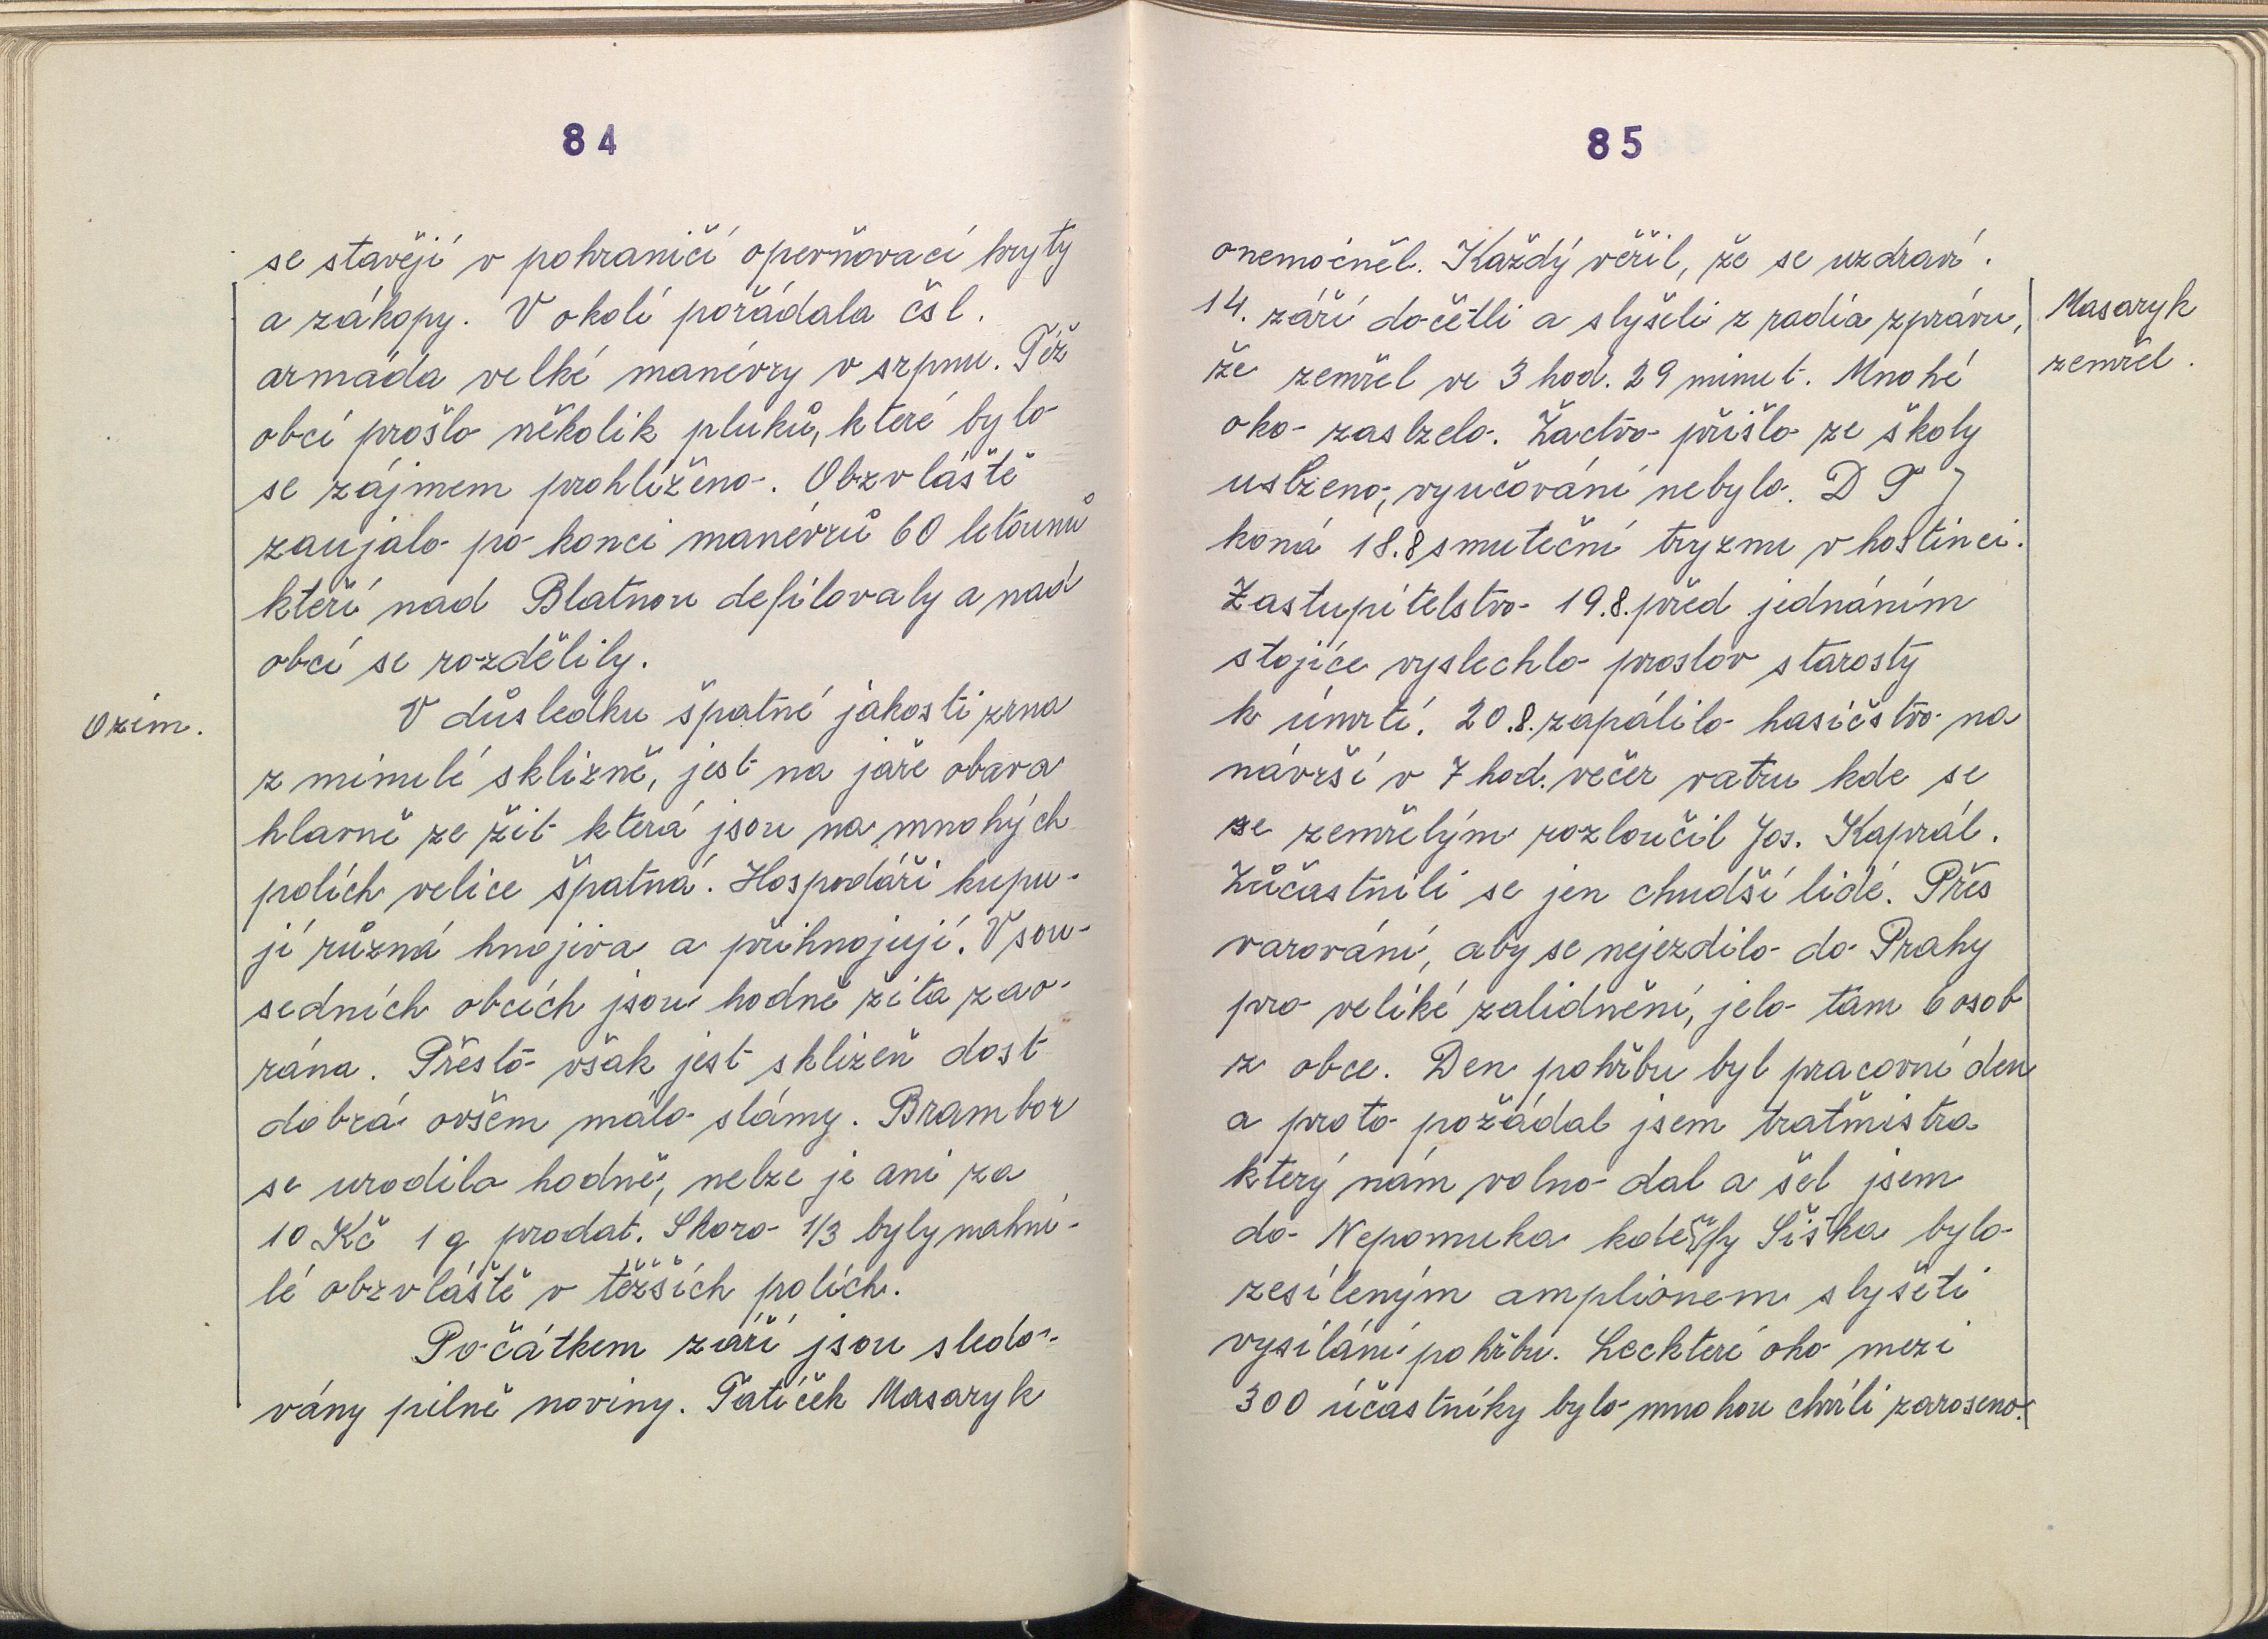 84
se stavějí v pohraničí opevňovací kryty
a zákopy. V okolí pořádala čsl.
armáda velké manévry v srpnu. Též
obcí prošlo několik pluků, které bylo
se zájmem prohlíženo. Obzvláště
zaujalo po konci manévrů 60 letounů
kteří nad Blatnou defilovaly a nad
obcí se rozdělily.
Ozim.
V důsledku špatné jakosti zrna
z minulé sklizně, jest na jaře obava
hlavně ze žit která jsou na mnohých
polích velice špatná. Hospodáři kupu-
jí různá hnojiva a přihnojují. V sou-
sedních obcích jsou hodně žita zao-
rána. Přesto však jest sklizeň dost
dobrá ovšem málo slámy. Brambor
se urodilo hodně, nelze je ani za
10 Kč 1 q prodat. Skoro 1/3 byly nahni-
lé obzvláště v těžších polích.
Počátkem září jsou sledo-
vány pilně noviny. Tatíček Masaryk
85
onemocněl. Každý věřil, že se uzdraví.
14. září dočetli a slyšeli z radia zprávu,
že zemřel ve 3 hod. 29 minut. Mnohé
oko zaslzelo. Žactvo přišlo ze školy
uslzeno, vyučování nebylo. D T J
koná 18.8 smuteční tryznu v hostinci.
Zastupitelstvo 19.8. před jednáním
stojíce vyslechlo proslov starosty
k úmrtí. 20.8. zapálilo hasičstvo na
návrší v 7 hod. večer vatru kde se
se zemřelým rozloučil Jos. Kaprál.
Zůčastnili se jen chudší lidé. Přes
varování, aby se nejezdilo do Prahy
pro veliké zalidnění, jelo tam 6 osob
z obce. Den pohřbu byl pracovní den
a proto požádal jsem traťmistra
který nám volno dal a šel jsem
do Nepomuka kde Šiška bylo
zesíleným amplionem slyšeti
vysílání pohřbu. Leckteré oko mezi
300 účastníky bylo mnohou chvíli zaroseno.
Masaryk
zemřel.